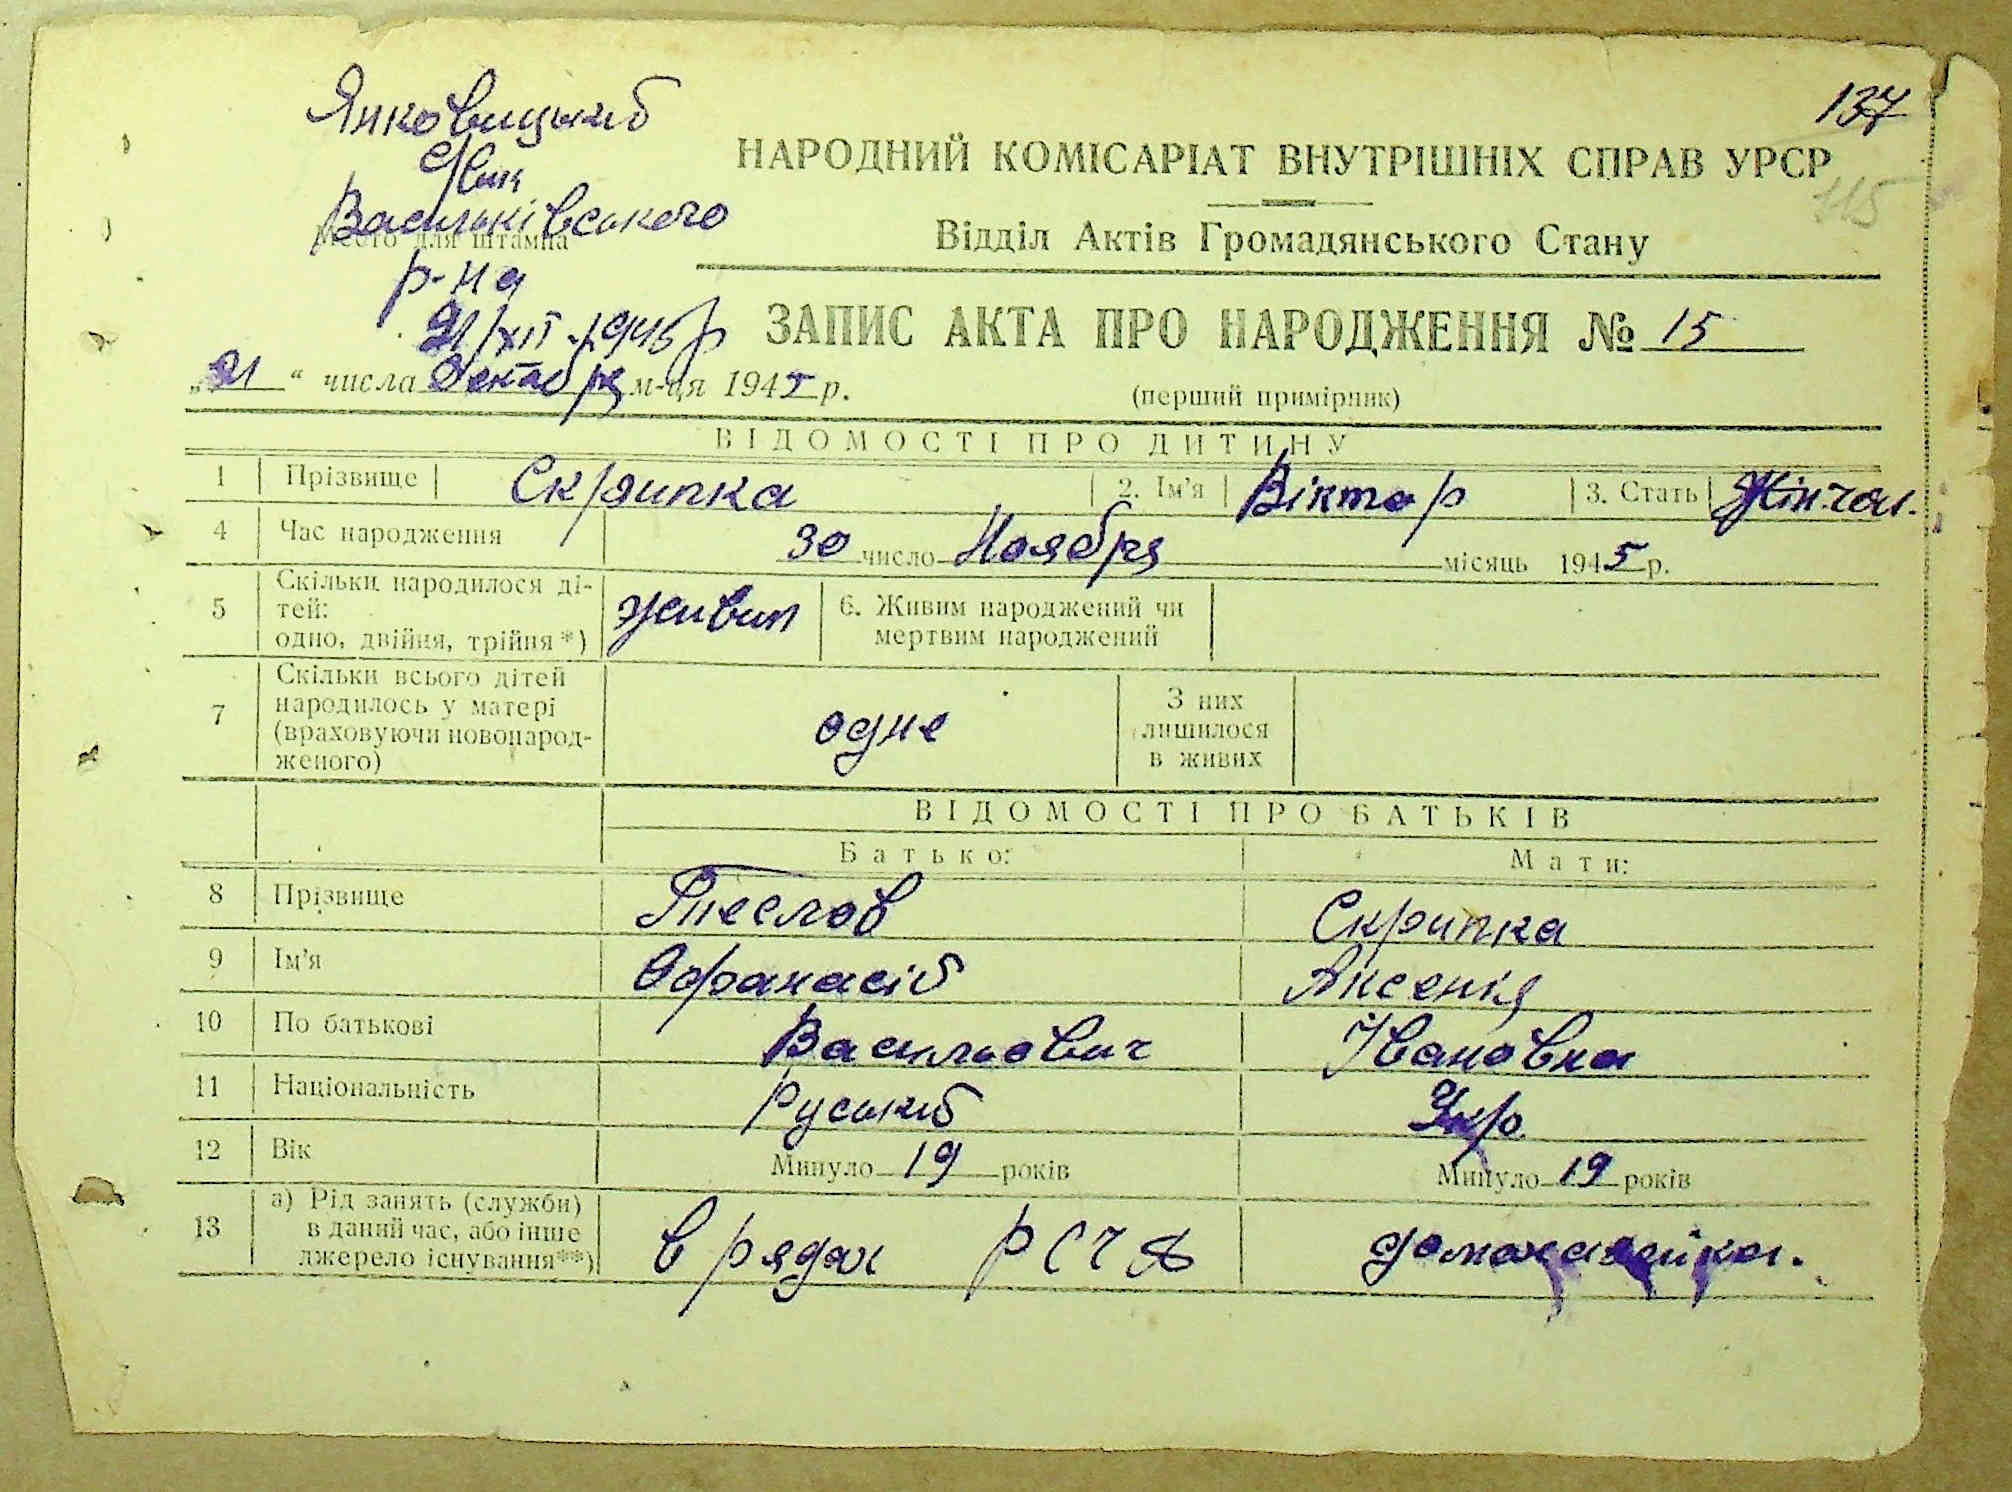 137
Янковицький
Р.Вик
НАРОДНИЙ КОМІСАРІАТ ВНУТРІШНІХ СПРАВ УРСР
115
Васильківського
Место для штампа
р-на
Відділ Актів Громадянського Стану
21/XII-1945р
ЗАПИС АКТА ПРО НАРОДЖЕННЯ № 15
„21“ числа Декабря м-ця 1945 р.
(перший примірник)
ВІДОМОСТІ ПРО ДИТИНУ
1 Прізвище Скрипка 2. Ім'я Віктор 3. Стать Жін. чол.
4 Час народження 30 число Ноября місяць 1945 р.
5 Скільки народилося дітей: одно, двійня, трійня*) живим 6. Живим народжений чи мертвим народжений
7 Скільки всього дітей народилось у матері (враховуючи новонародженого) одне З них лишилося в живих
ВІДОМОСТІ ПРО БАТЬКІВ
Батько: Мати:
8 Прізвище Теслов Скрипка
9 Ім'я Офанасій Аксенія
10 По батькові Васильович Івановна
11 Національність Руський Укр.
12 Вік Минуло 19 років Минуло 19 років
13 а) Рід занять (служби) в даний час, або інше джерело існування**) в рядах РСЧА домохазяйка.